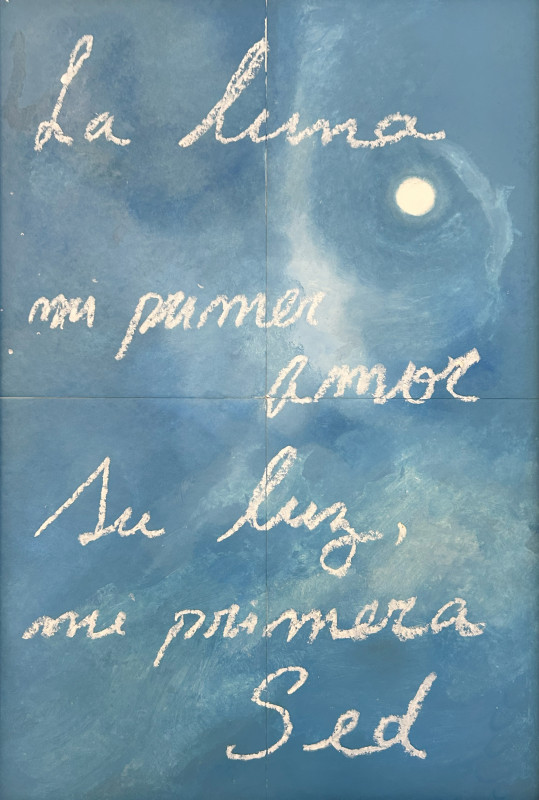 La luna
mi primer
amor
Su luz,
mi primera
Sed